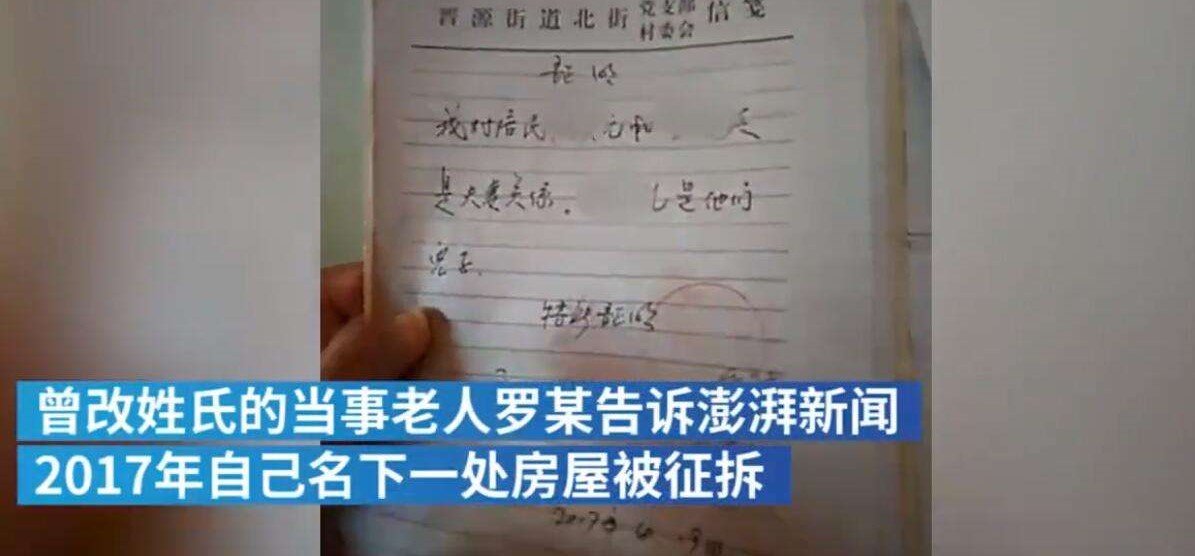 晋源街道北街党支部村委会信笺
证明
我村居民 元和 关
是夫妻关系. 也是他们
儿子.
特此证明
曾改姓氏的当事老人罗某告诉澎湃新闻
2017年自己名下一处房屋被征拆
2017年6